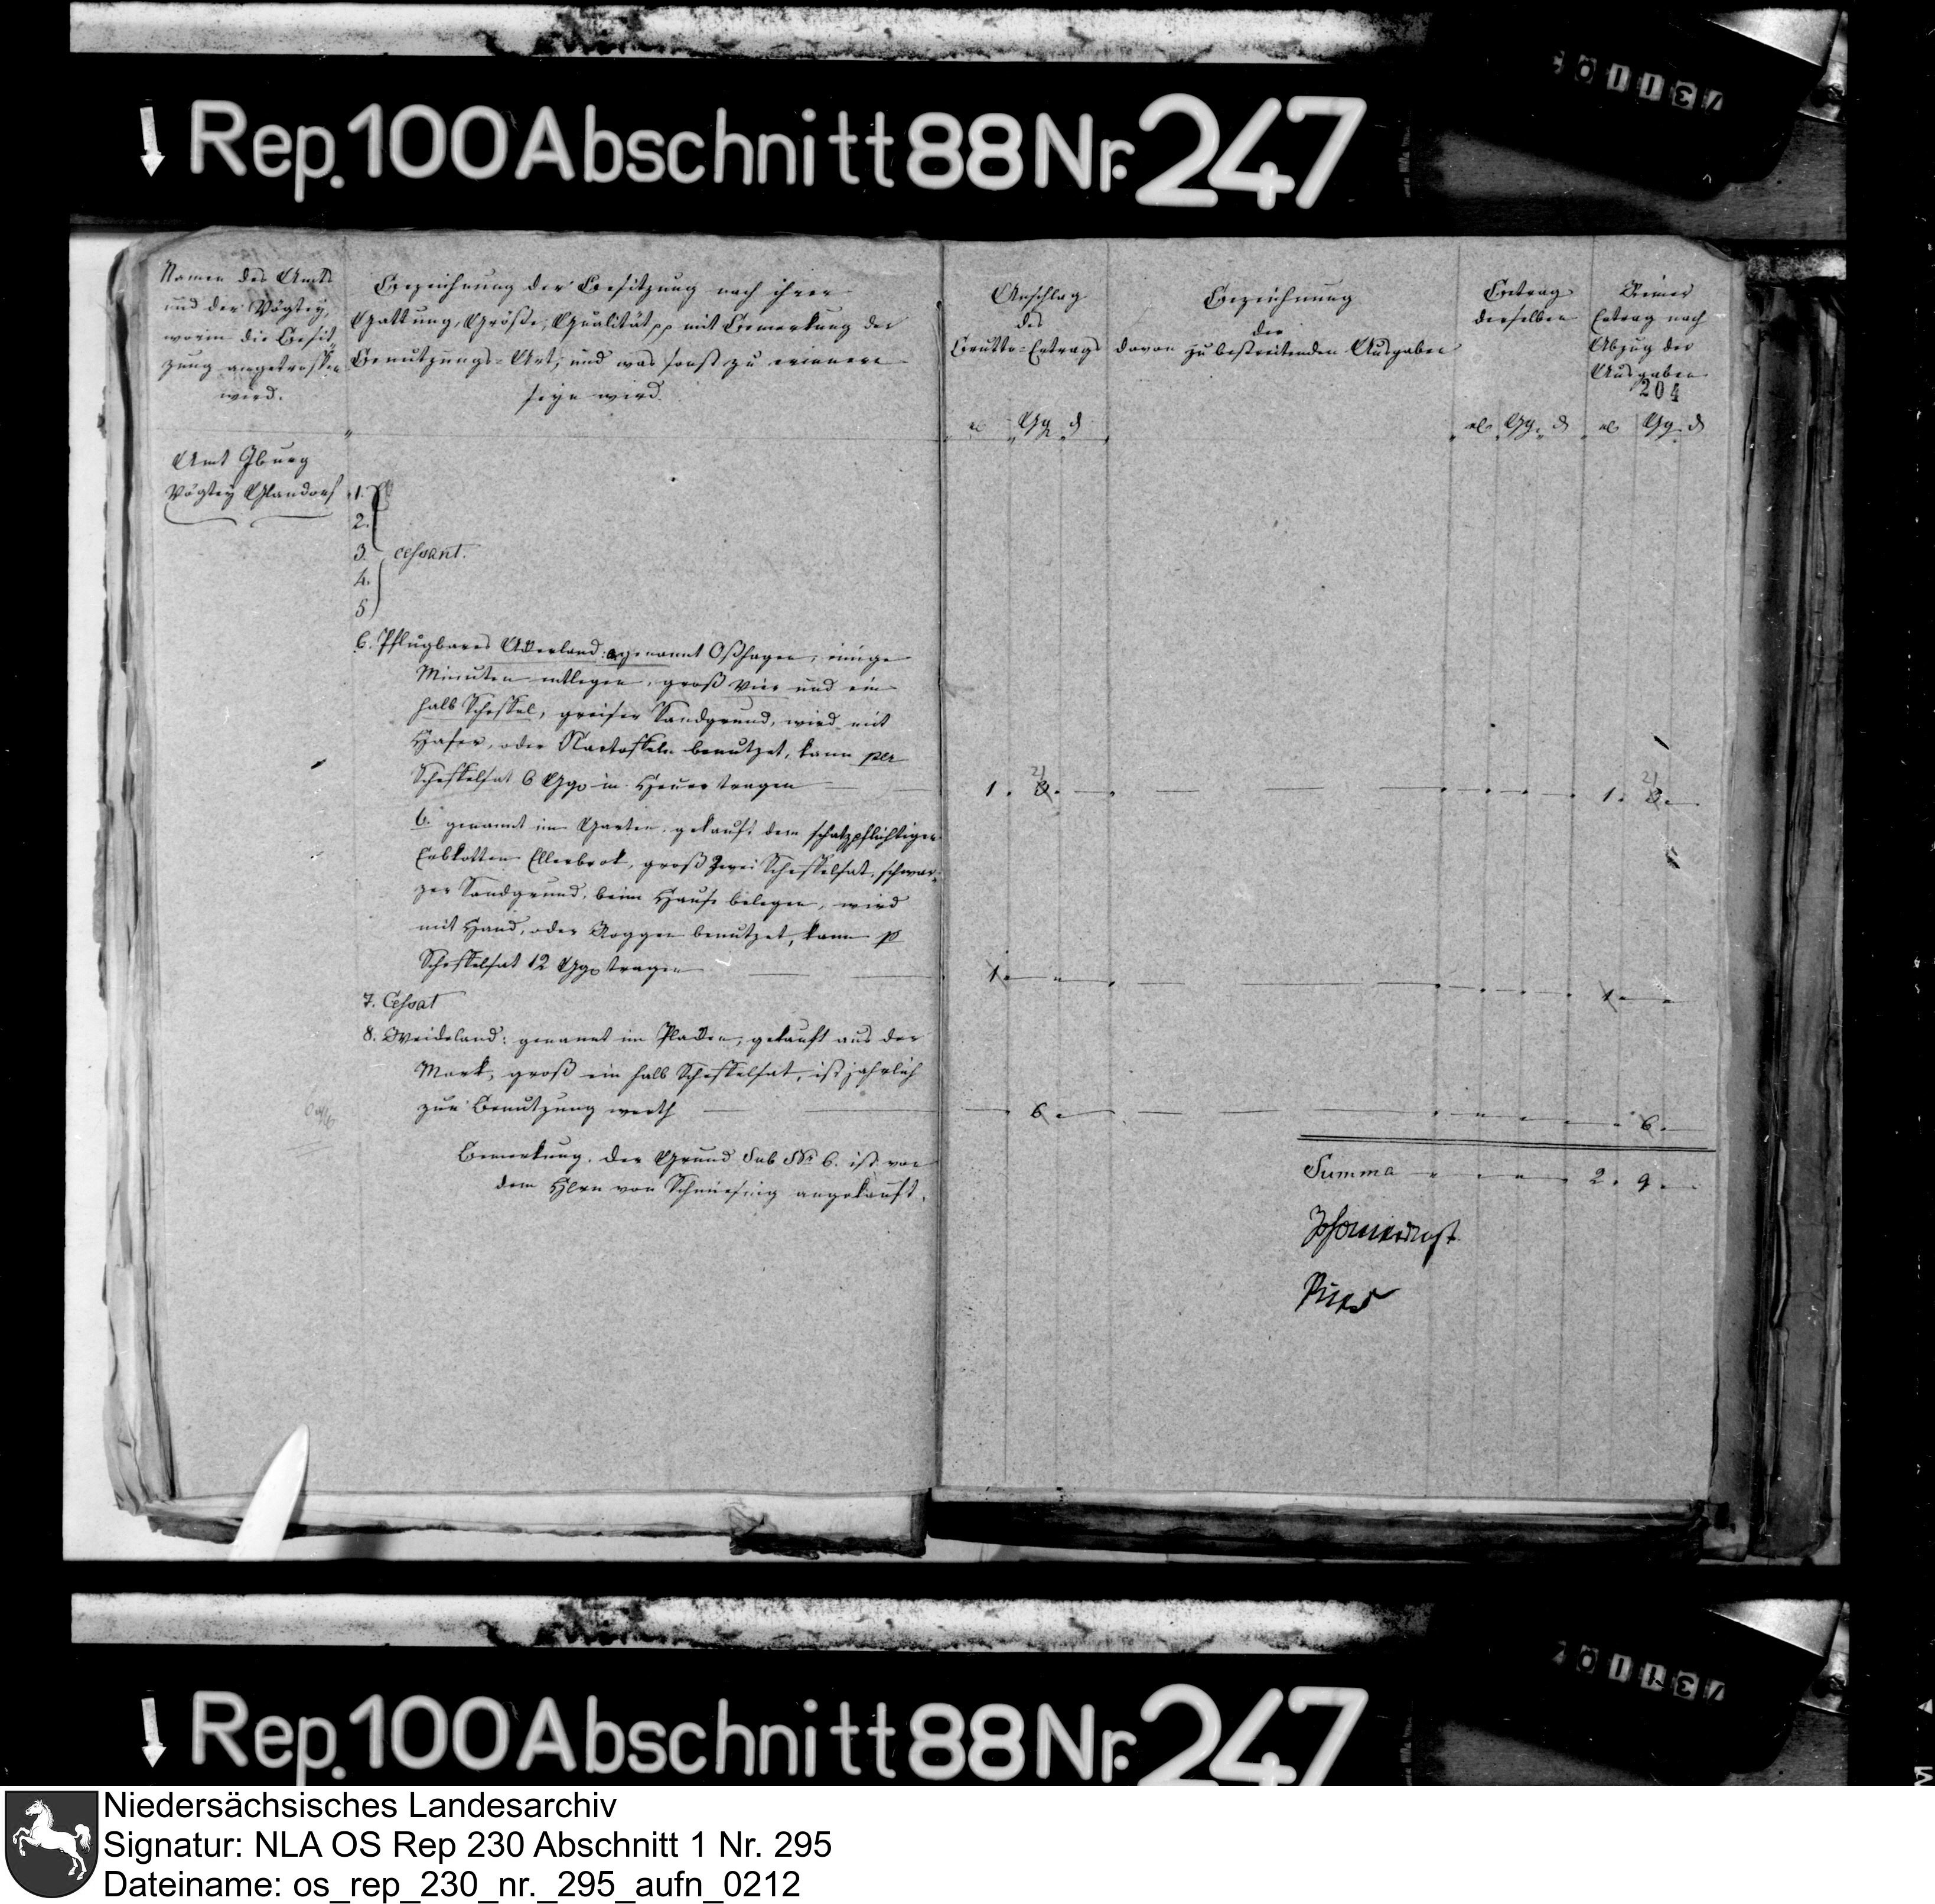 Rep. 100 Abschnitt 88 Nr. 247
Namen des Amts
und der Vogtey,
worin die Besit-
zung angetroffen
wird.
Bezeichnung der Besitzung nach ihrer
Gattung, Größe, Qualität pp mit Bemerkung der
Benutzungs-Art, und was sonst zu erinnern
seyn wird.
Anschlag
des
Brutto-Ertrags
Bezeichnung
der
davon zu bestreitenden Ausgaben
Betrag
derselben
Reiner
Ertrag nach
Abzug der
Ausgaben
204
Gg d
Gg d
Gg d
Amt Iburg
Vogtey Glandorf
1.
2.
3. cessant.
4.
5
6. Pflugbares Ackerland: a genannt Oßhagen, einige
Minuten entlegen, groß vier und ein
halb Scheffel, greiser Sandgrund, wird mit
Hafer, oder Kartoffeln benutzet, kann per
Scheffelsat 6 Ggr in Heuer tragen
1. 21
1. 21
b. genannt im Garten, gekauft dem schatzpflichtigen
Erbkotten Ellerbrok, groß zwei Scheffelsat, schwar-
zer Sandgrund, beim Hause belegen, wird
mit Hand, oder Roggen benutzet, kann p
Scheffelsat 12 Ggr tragen
1.
1.
7. Cessat
8. Weideland: genannt im Placken, gekauft aus der
Mark, groß ein halb Scheffelsat, ist jährlich
zur Benutzung werth
6
6.
Bemerkung. Der Grund Sub No 6. ist von
dem Hern von Schmiesing angekauft.
Summa 2. 9.
Rep. 100 Abschnitt 88 Nr. 247
Niedersächsisches Landesarchiv
Signatur: NLA OS Rep 230 Abschnitt 1 Nr. 295
Dateiname: os_rep_230_nr._295_aufn_0212